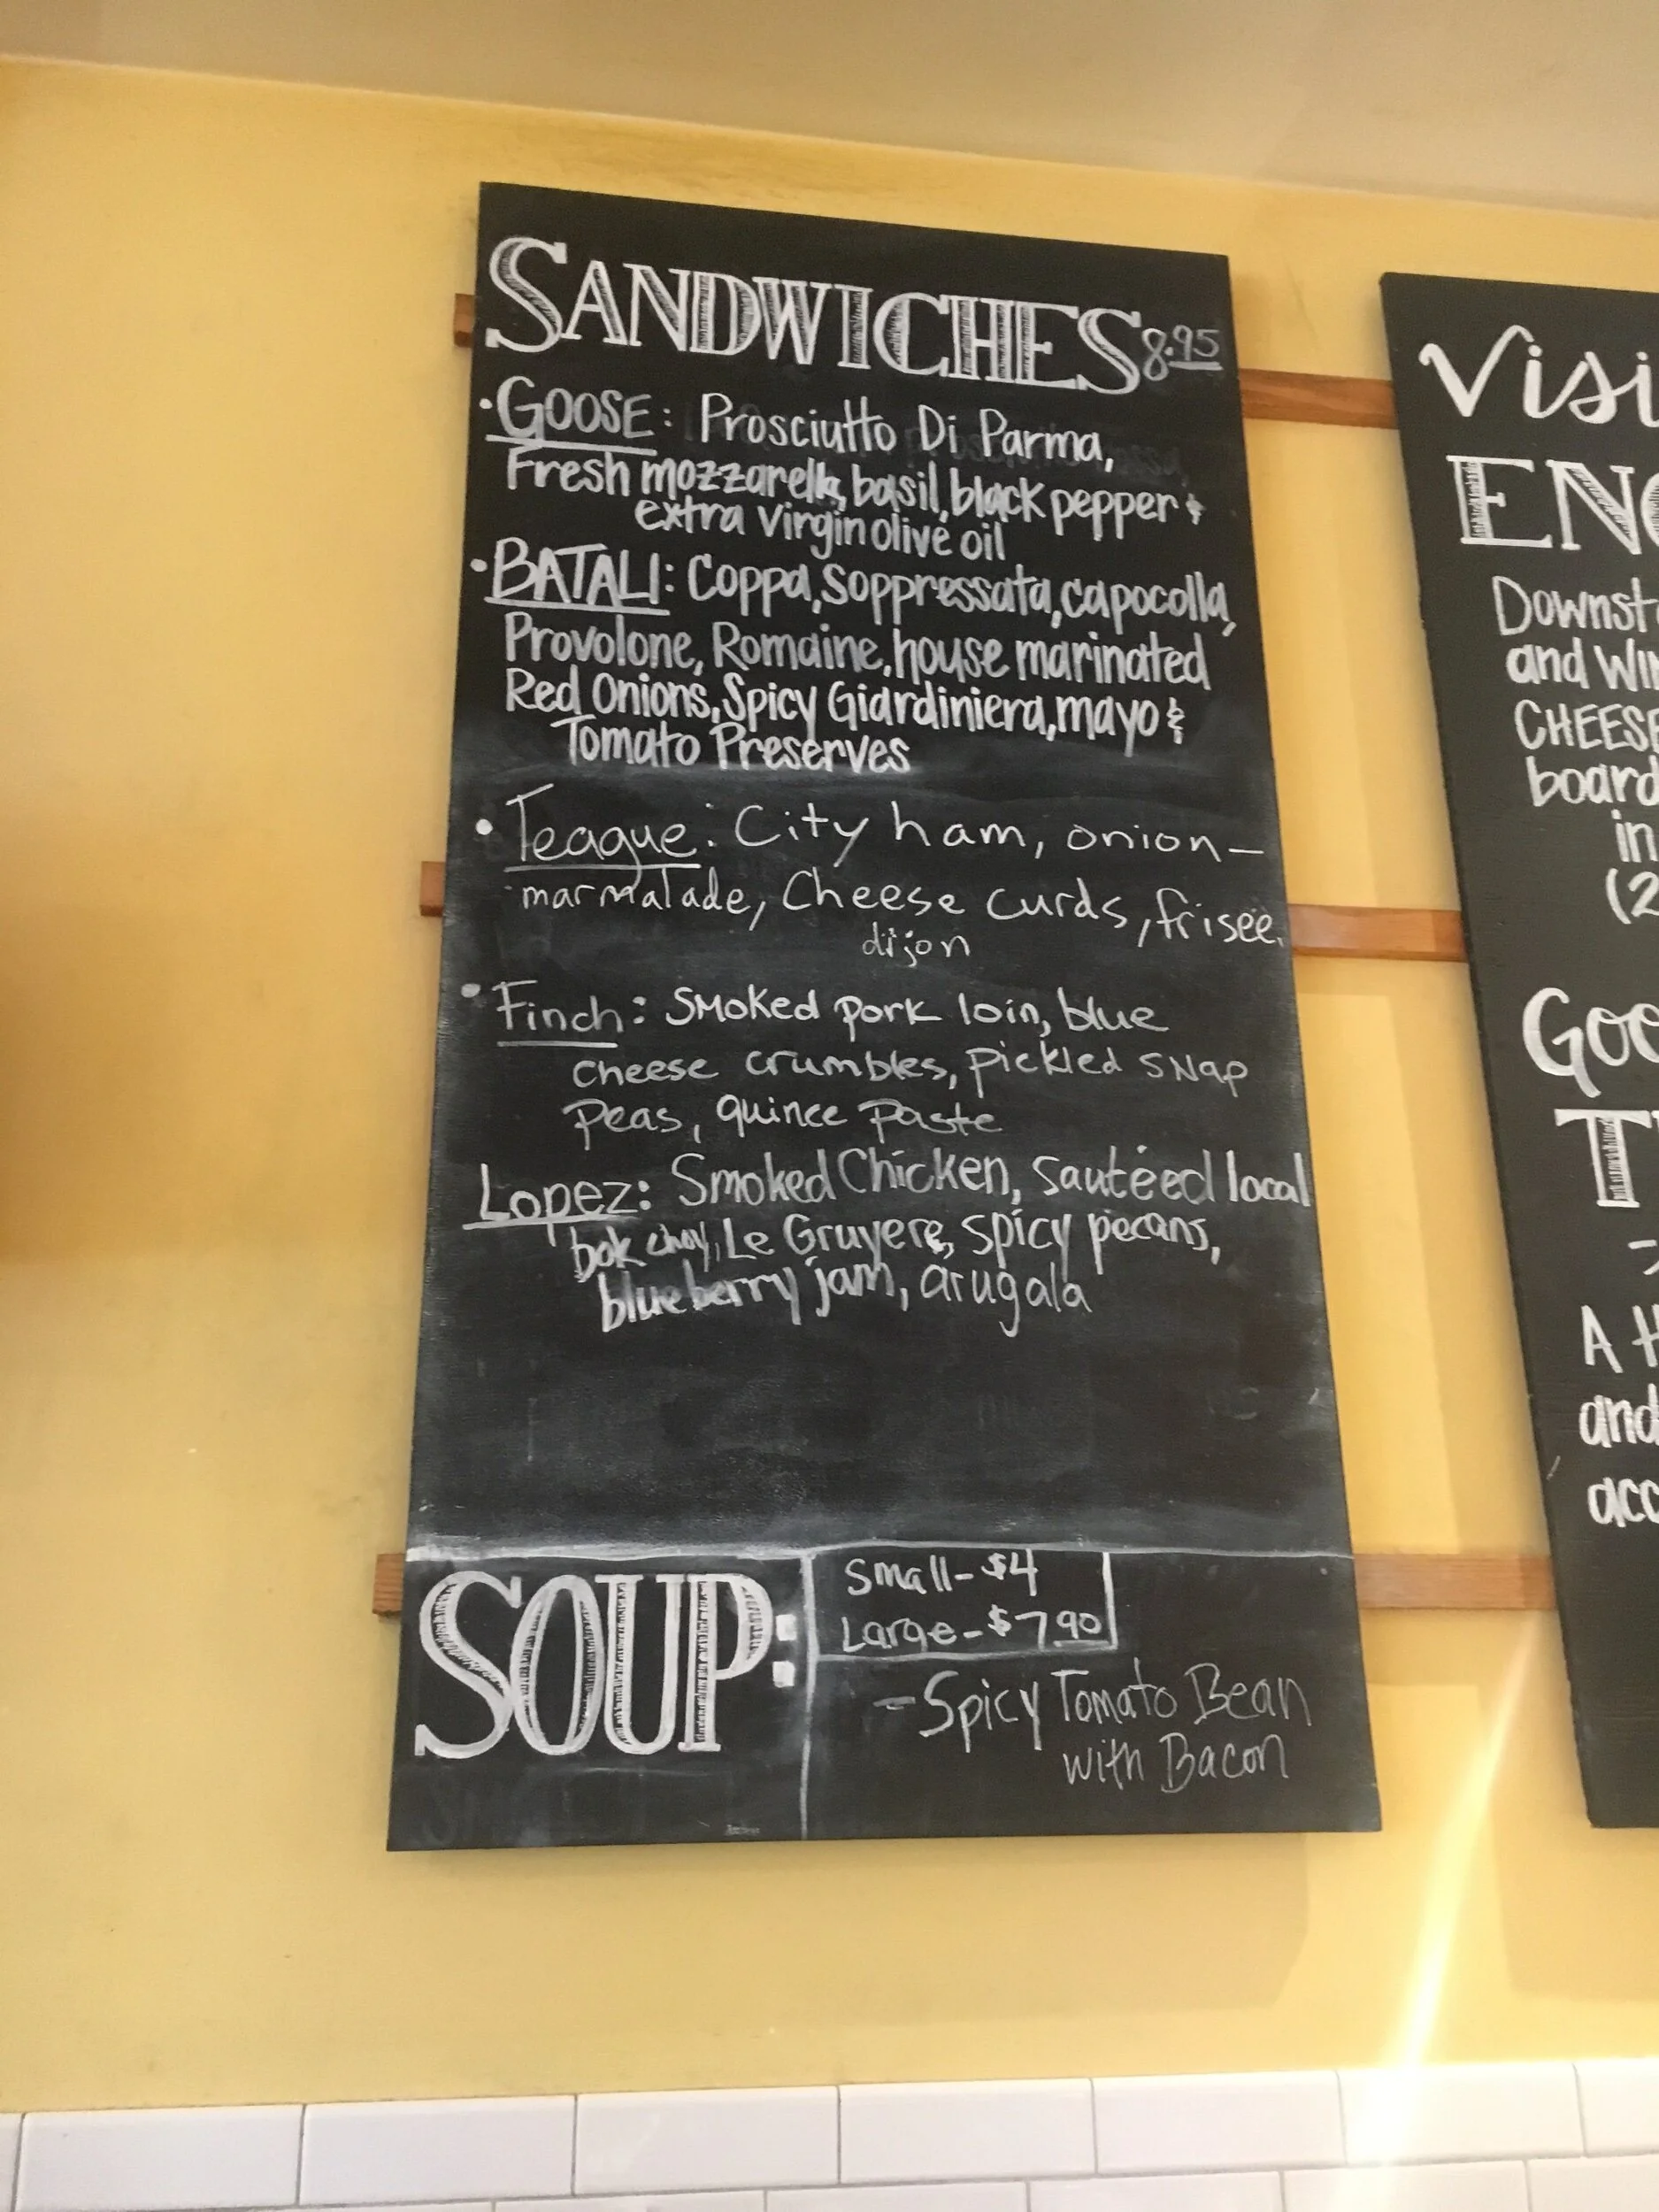 SANDWICHES 8.95
• GOOSE: Prosciutto Di Parma,
Fresh mozzarella, basil, black pepper &
extra virgin olive oil
• BATALI: Coppa, Soppressata, capocolla,
Provolone, Romaine, house marinated
Red Onions, Spicy Giardiniera, mayo &
Tomato Preserves
• Teague: City ham, onion-
marmalade, Cheese curds, friseé,
dijon
• Finch: Smoked pork loin, blue
cheese crumbles, pickled snap
peas, quince paste
Lopez: Smoked Chicken, sautéed local
bok choy, Le Gruyere, spicy pecans,
blueberry jam, arugala
SOUP:
Small - $4
Large - $7.90
- Spicy Tomato Bean
with Bacon
Visi
EN
Downst
and WI
CHEESE
board
in
(2
Goo
T
A H
and
acc